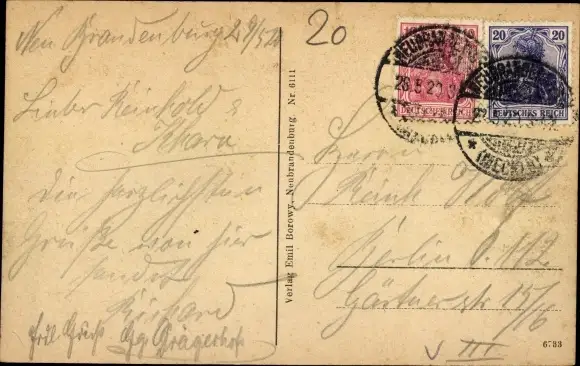 Neu Brandenburg 29/5 20
20
Lieber Reinhold &
Klara
Die herzlichsten
Grüße von hier
sendet
Richard
Frdl. Gruß
Verlag Emil Borowy, Neubrandenburg. Nr. 6111
10
DEUTSCHES REICH
20
DEUTSCHES REICH
NEUBRANDENBURG
(MECKLB)
Herrn
Reinh
Berlin O. 112
Gärtnerstr 15/16
V III
6733